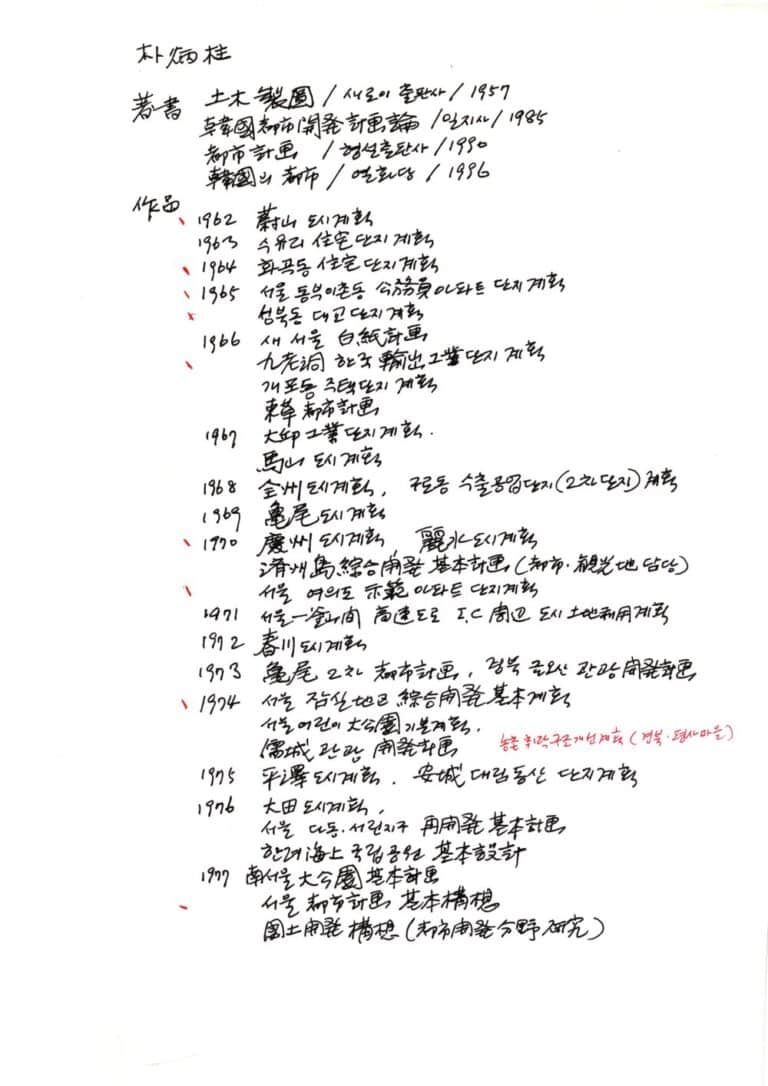 朴炳柱
著書 土木製圖 / 새로이 출판사 / 1957
韓國都市開發計画論 / 일지사 / 1985
都市計画 / 형설출판사 / 1990
韓國의 都市 / 열화당 / 1996
作品
1962 蔚山 도시계획
1963 수유리 住宅단지계획
1964 화곡동 住宅단지계획
1965 서울 동부이촌동 公務員아파트 단지계획
성북동 대교단지계획
1966 새 서울 白紙計画
九老洞 한국 輸出工業단지 계획
개포동 주택단지 계획
東草 都市計画
1967 大邱工業단지계획.
馬山 도시계획
1968 全州도시계획, 구로동 수출공업단지(2차단지)계획
1969 亀尾도시계획
1970 慶州도시계획, 麗水도시계획
済州島綜合開発基本計画(都市·観光地担当)
서울 여의도 示範아파트단지계획
1971 서울-釜山間 高速도로 I.C 周辺 도시土地利用계획
1972 春川도시계획
1973 亀尾 2차 都市計画, 경북 금오산 관광開発計画
1974 서울 잠실地区 綜合開発基本계획
서울어린이大公園기본계획.
儒城관광 開発計画 농촌취락구조개선계획(경북·평사마을)
1975 平澤도시계획. 安城대림동산 단지계획
1976 大田도시계획,
서울 다동·서린지구 再開発基本計画
한려海上국립공원 基本設計
1977 南서울大公園基本計画
서울 都市計画 基本構想
国土開発構想(都市開発分野研究)